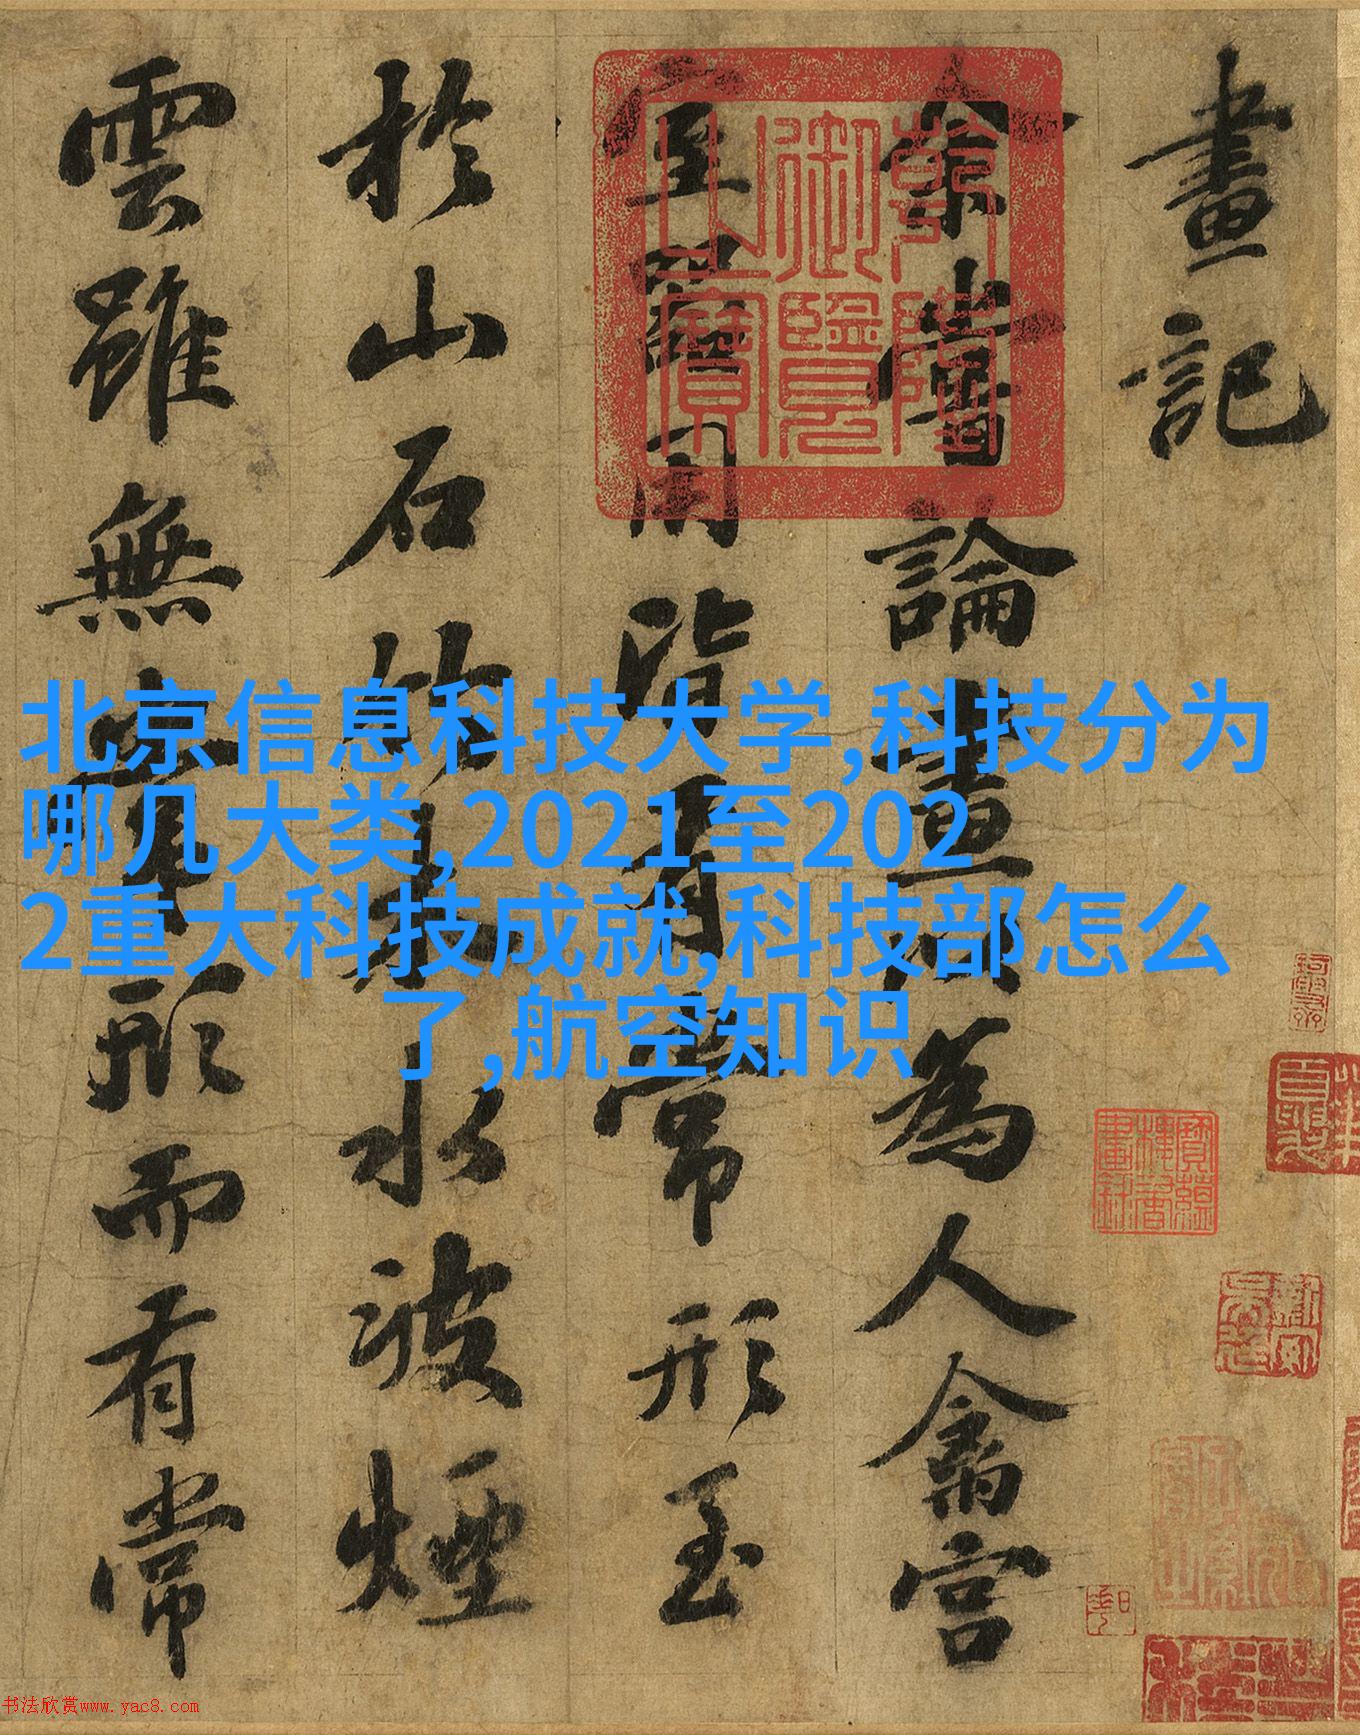 畫記
余嘗論畫以為人禽宮
室器用皆有常形至
於山石竹木水波煙
雲雖無常形而有常
乾隆御覽之寶
北京信息科技大学,科技分为
哪几大类,2021至202
2重大科技成就,科技部怎么
了,航空知识
书法欣赏www.yac8.com